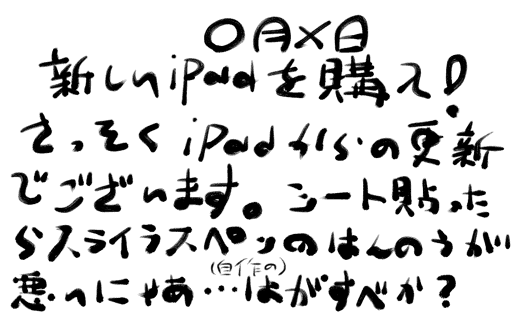 ○月×日
新しいiPadを購入!
さっそくiPadからの更新
でございます。シート貼った
らスライラスペンのはんのうが
悪いにゃあ…はがすべか?
(自作の)